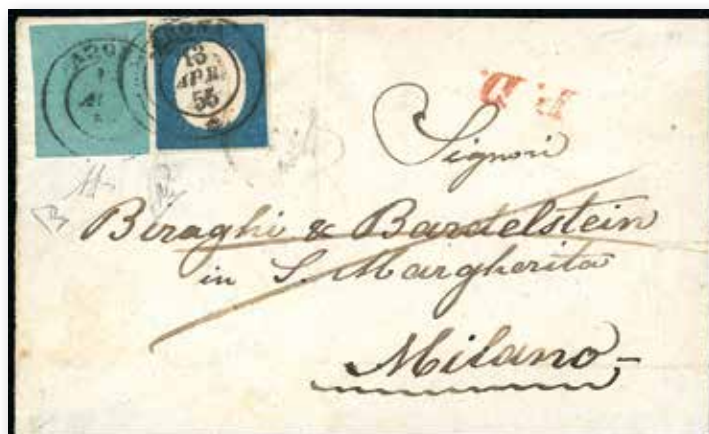 ARONA
13
APR.
55
P.D.
Signori
Biraghi & Bardelstein
in S. Margherita
Milano